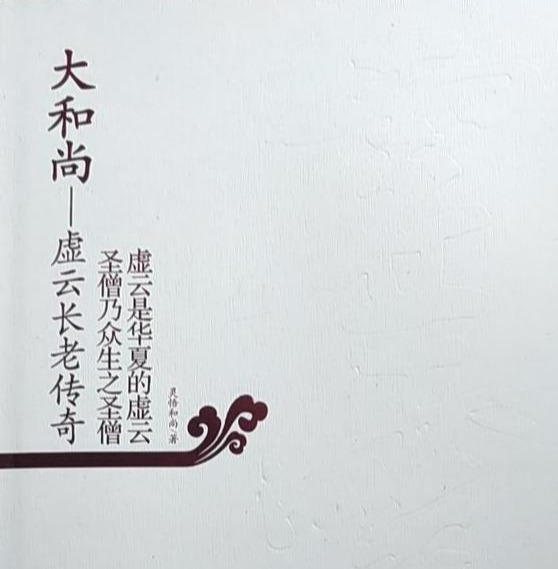 大和尚—虚云长老传奇
虚云是华夏的虚云
圣僧乃众生之圣僧
灵悟和尚/著